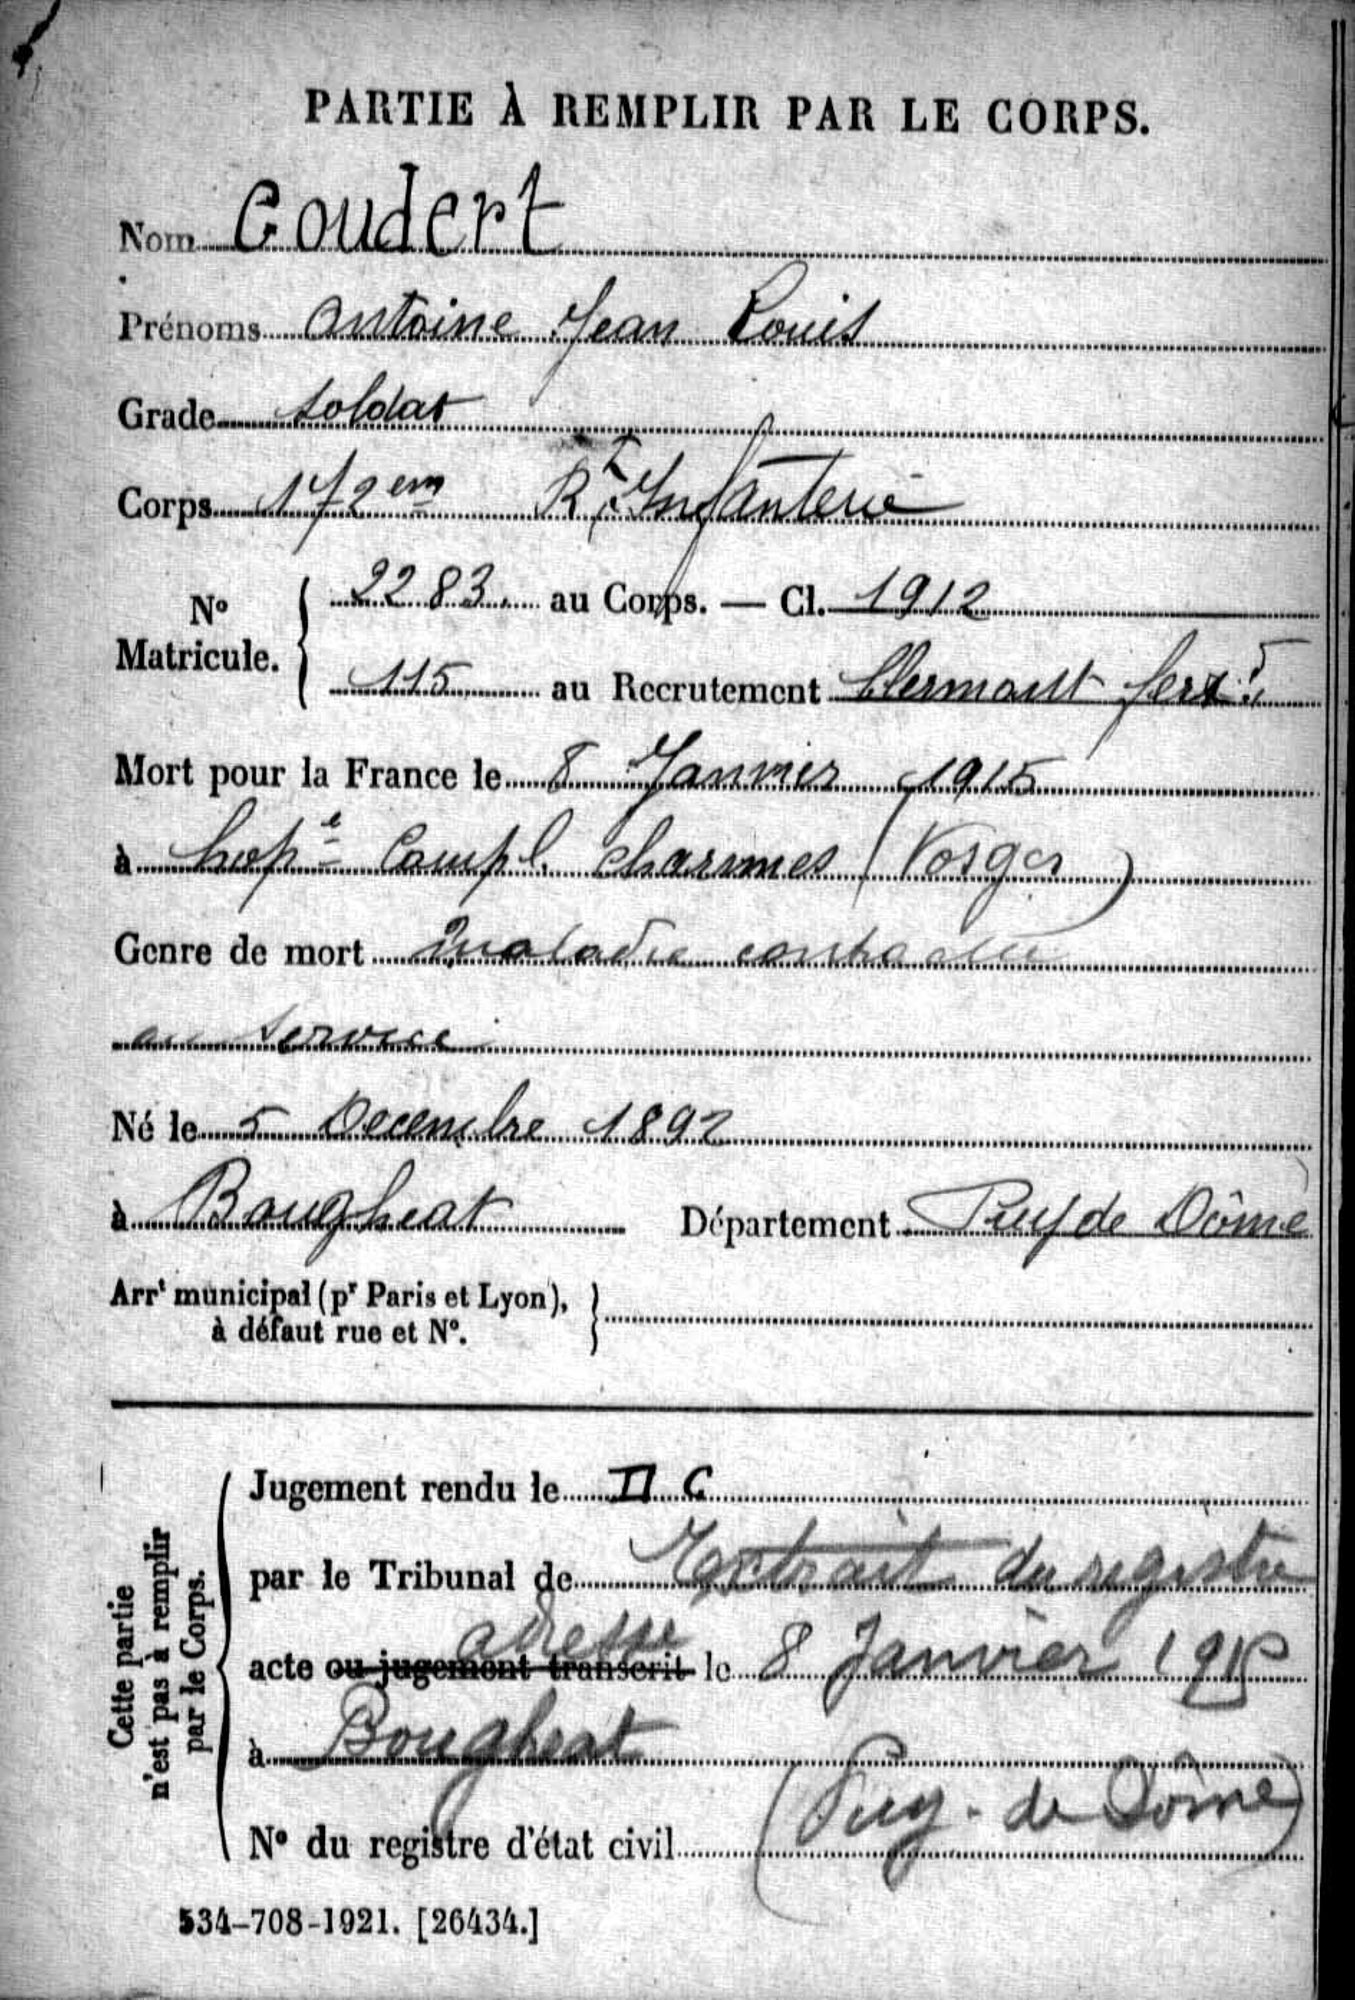 PARTIE À REMPLIR PAR LE CORPS.
Nom Coudert
Prénoms Antoine Jean Louis
Grade soldat
Corps 172em Rt Infanterie
No Matricule. 2283. au Corps. — Cl. 1912
115 au Recrutement Clermont Ferd
Mort pour la France le 8 Janvier 1915
à hople Compl. Charmes (Vosges)
Genre de mort Maladie contractée
au service
Né le 5 Decembre 1892
à Bongheat Département Puy de Dôme
Arrt municipal (pr Paris et Lyon),
à défaut rue et No.
Cette partie n'est pas à remplir par le Corps.
Jugement rendu le D C
par le Tribunal de Extrait du registre
adresse
acte ou jugement transcrit le 8 Janvier 1915
à Bongheat
(Puy-de Dôme)
No du registre d'état civil
534-708-1921. [26434.]